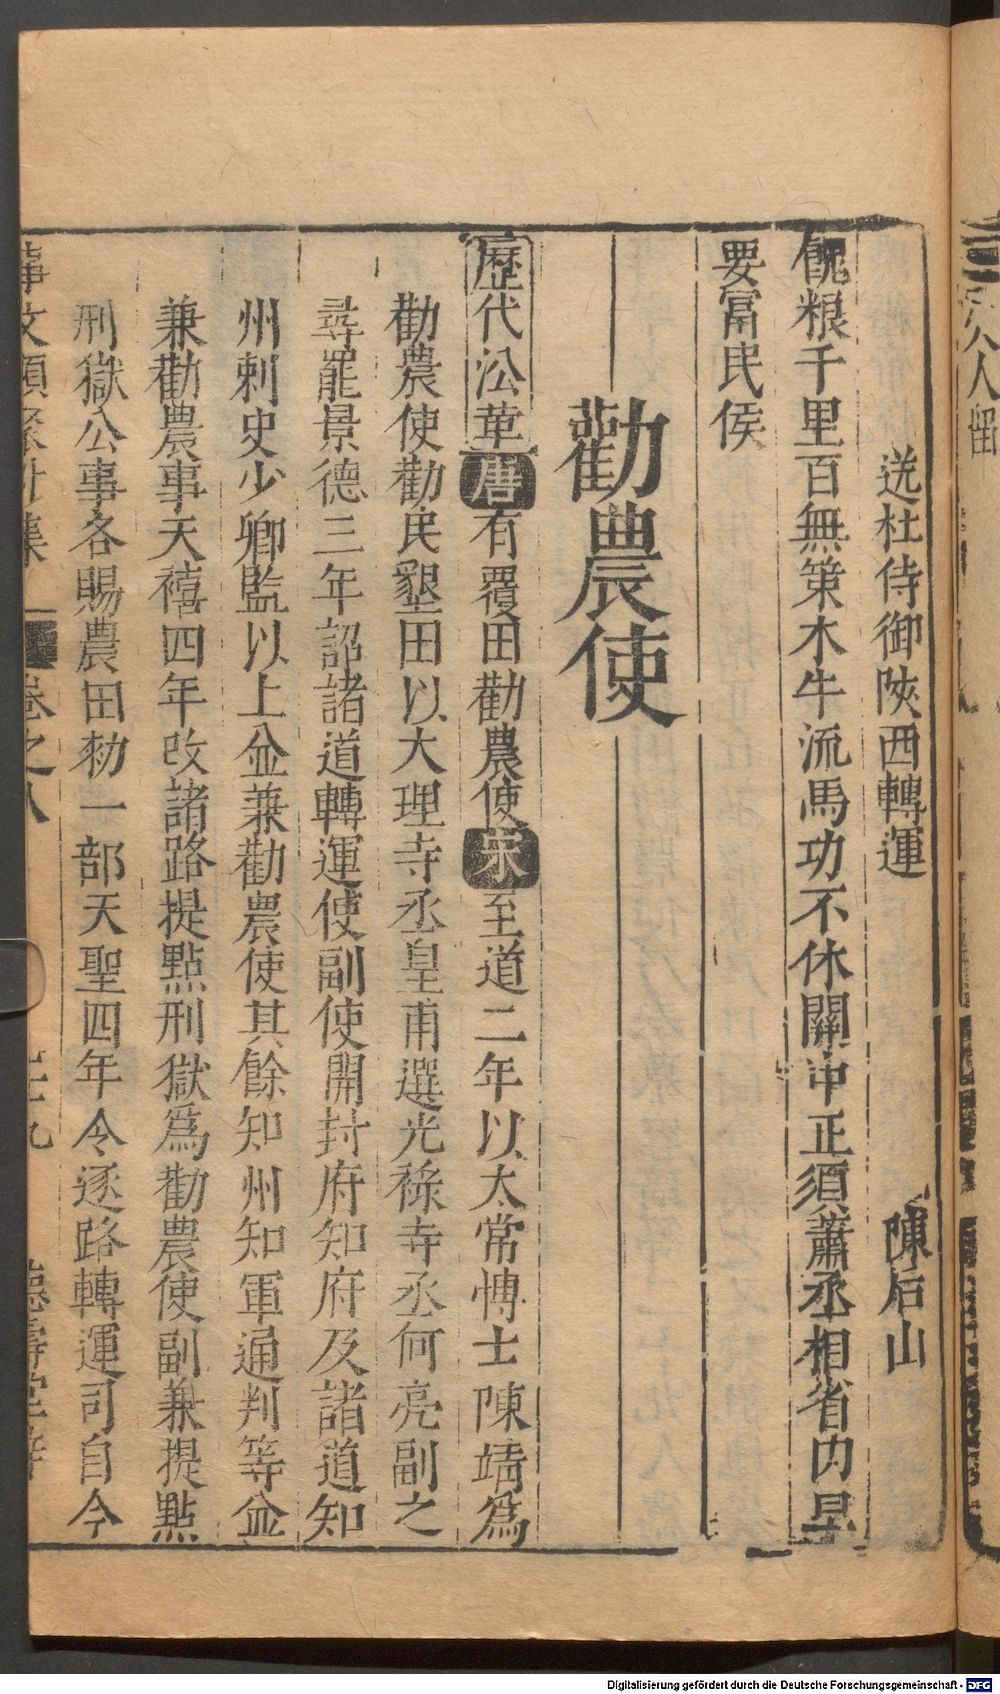 送杜侍御陝西轉運 陳后山
餽粮千里百無策木牛流馬功不休關中正須蕭丞相省内早
要富民侯
勸農使
歷代㳂革唐有覆田勸農使宋至道二年以太常愽士陳靖爲
勸農使勸民墾田以大理寺丞皇甫選光祿寺丞何亮副之
尋罷景德三年詔諸道轉運使副使開封府知府及諸道知
州刺史少卿監以上並兼勸農使其餘知州知軍通判等並
兼勸農事天禧四年改諸路提點刑獄爲勸農使副兼提點
刑獄公事各賜農田勑一部天聖四年令逐路轉運司自今
事文類聚外集 卷之八 德壽堂梓
Digitalisierung gefördert durch die Deutsche Forschungsgemeinschaft - DFG